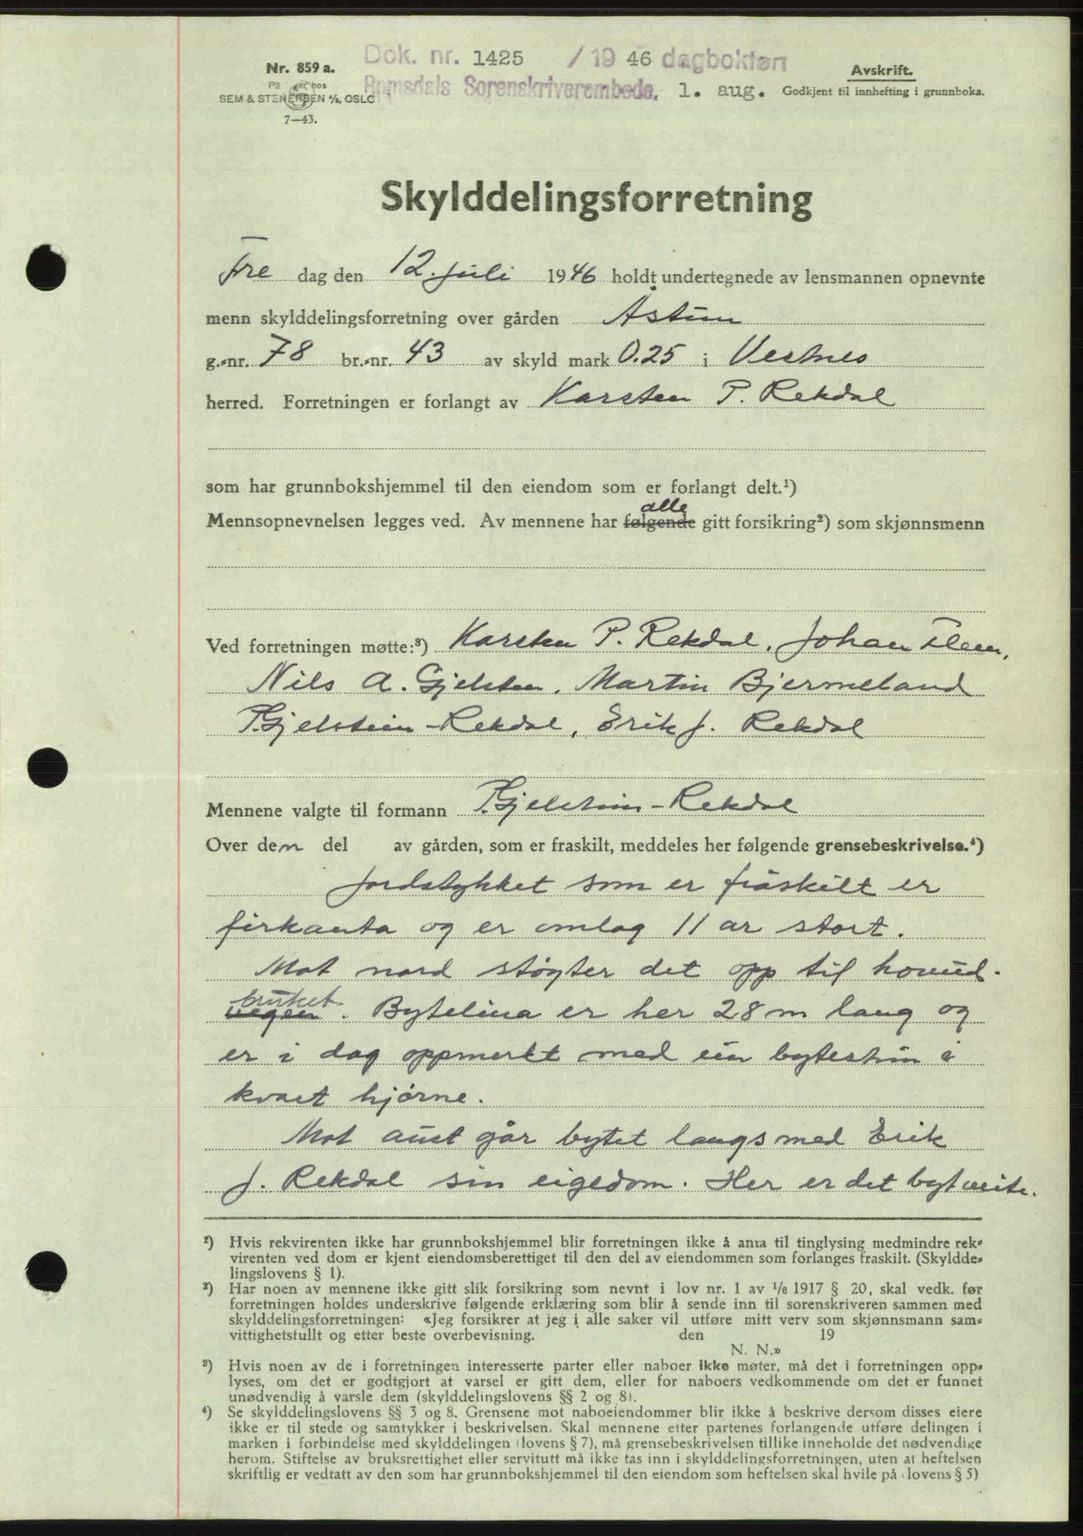 Dok. nr. 1425 / 19 46 dagbokført
Romsdals Sorenskriverembede, 1. aug.
Nr. 859 a.
På hos
SEM & STENERSEN A/S, OSLO
7—43.
Avskrift.
Godkjent til innhefting i grunnboka.
Skylddelingsforretning
Fre dag den 12. juli 1946 holdt undertegnede av lensmannen opnevnte
menn skylddelingsforretning over gården Åstun
g.-nr. 78 br.-nr. 43 av skyld mark 0.25 i Vestnes
herred. Forretningen er forlangt av Karsten P. Rekdal
som har grunnbokshjemmel til den eiendom som er forlangt delt.¹)
alle
Mennsopnevnelsen legges ved. Av mennene har følgende gitt forsikring²) som skjønnsmenn
Ved forretningen møtte:³) Karsten P. Rekdal, Johan Flem,
Nils A. Gjelsten, Martin Bjermeland
P. Gjelstein-Rekdal, Erik J. Rekdal
Mennene valgte til formann P. Gjelstein-Rekdal
Over den del av gården, som er fraskilt, meddeles her følgende grensebeskrivelse.⁴)
Jordstykket som er fråskilt er
firkanta og er omlag 11 ar stort.
Mot nord støyter det opp til hovud-
bruket
vegen. Bytelina er her 28 m lang og
er i dag oppmerkt med ein bytestein i
kvart hjørne.
Mot aust går bytet langs med Erik
J. Rekdal sin eigedom. Her er det bytveite.
¹) Hvis rekvirenten ikke har grunnbokshjemmel blir forretningen ikke å anta til tinglysing medmindre rek-
virenten ved dom er kjent eiendomsberettiget til den del av eiendommen som forlanges fraskilt. (Skyldde-
lingslovens § 1).
²) Har noen av mennene ikke gitt slik forsikring som nevnt i lov nr. 1 av 1/8 1917 § 20, skal vedk. før
forretningen holdes underskrive følgende erklæring som blir å sende inn til sorenskriveren sammen med
skylddelingsforretningen: «Jeg forsikrer at jeg i alle saker vil utføre mitt verv som skjønnsmann sam-
vittighetsfullt og etter beste overbevisning. den 19
N. N.»
³) Hvis noen av de i forretningen interesserte parter eller naboer ikke møter, må det i forretningen opp-
lyses, om det er godtgjort at varsel er gitt dem, eller for naboers vedkommende om det er funnet
unødvendig å varsle dem (skylddelingslovens §§ 2 og 8).
⁴) Se skylddelingslovens §§ 3 og 8. Grensene mot naboeiendommer blir ikke å beskrive dersom disses eiere
ikke er til stede og samtykker i beskrivelsen. Skal mennene etter partenes forlangende utføre delingen i
marken i forbindelse med skylddelingen (lovens § 7), må grensebeskrivelsen tillike inneholde det nødvendige
herom. Stiftelse av bruksrettighet eller servitutt må ikke tas inn i skylddelingsforretningen, uten at heftelsen
skriftlig er vedtatt av den som har grunnbokshjemmel til den eiendom som heftelsen skal hvile på (lovens § 5)